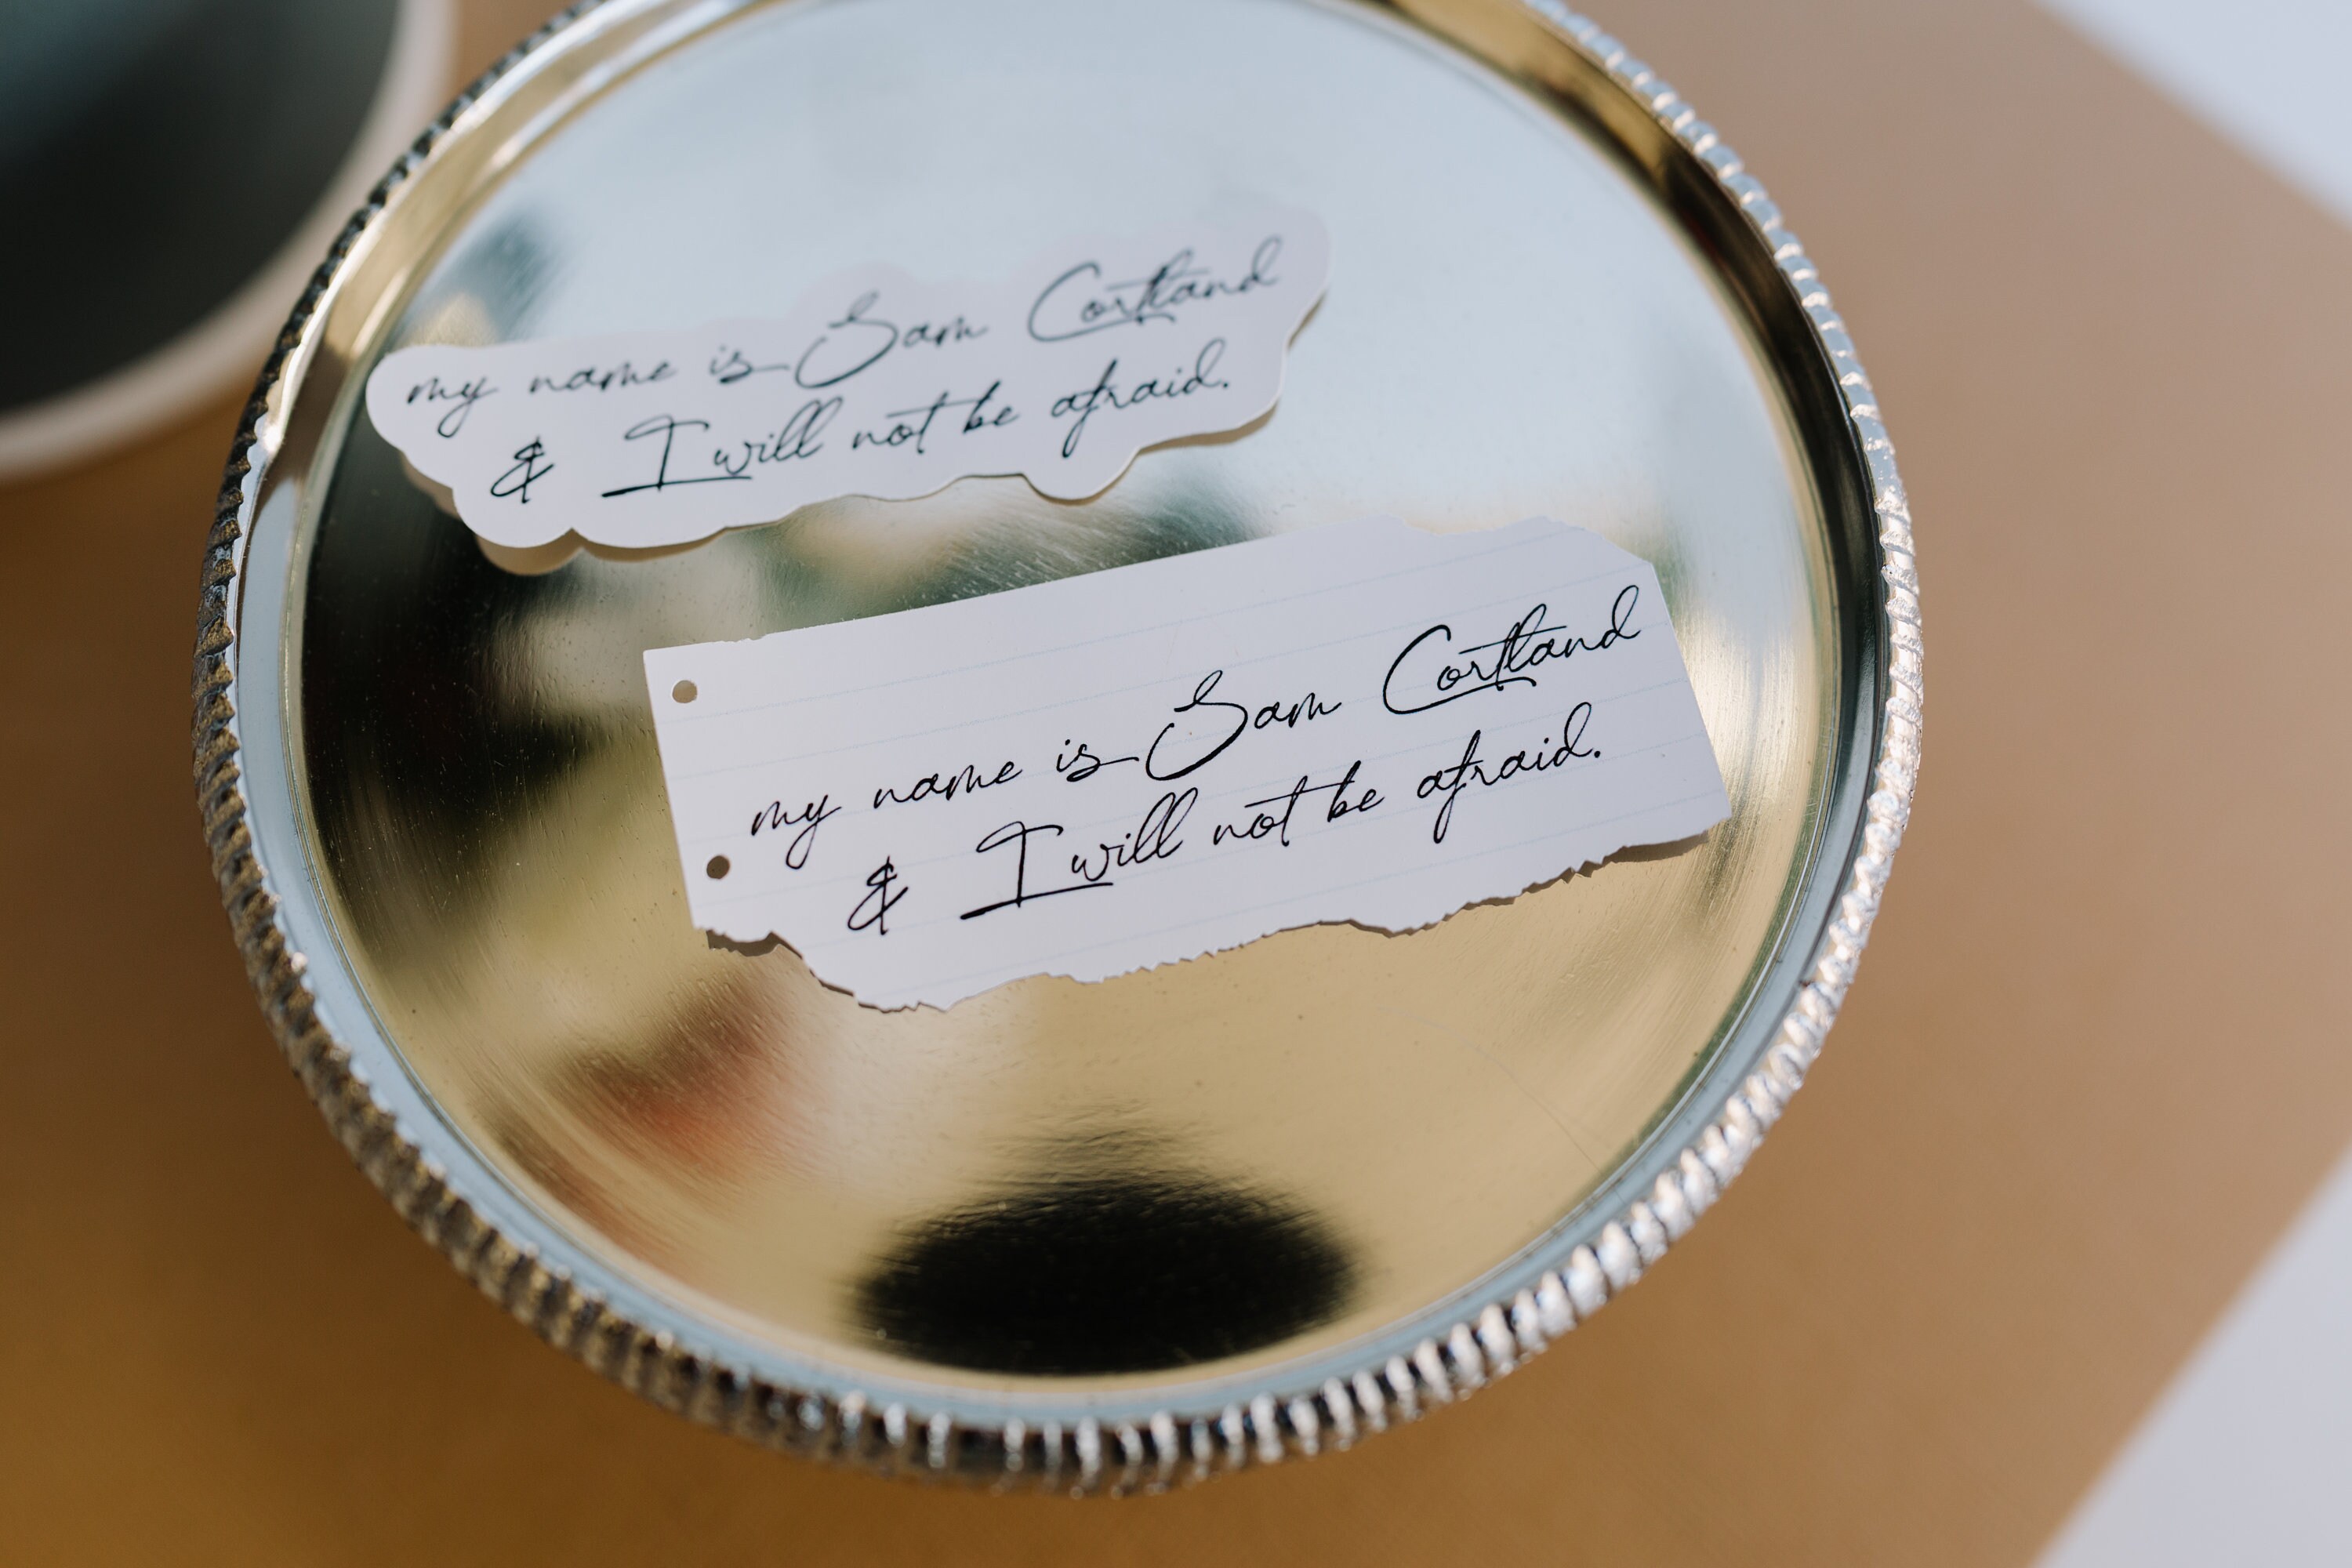 my name is Sam Cortland
& I will not be afraid.
my name is Sam Cortland
& I will not be afraid.